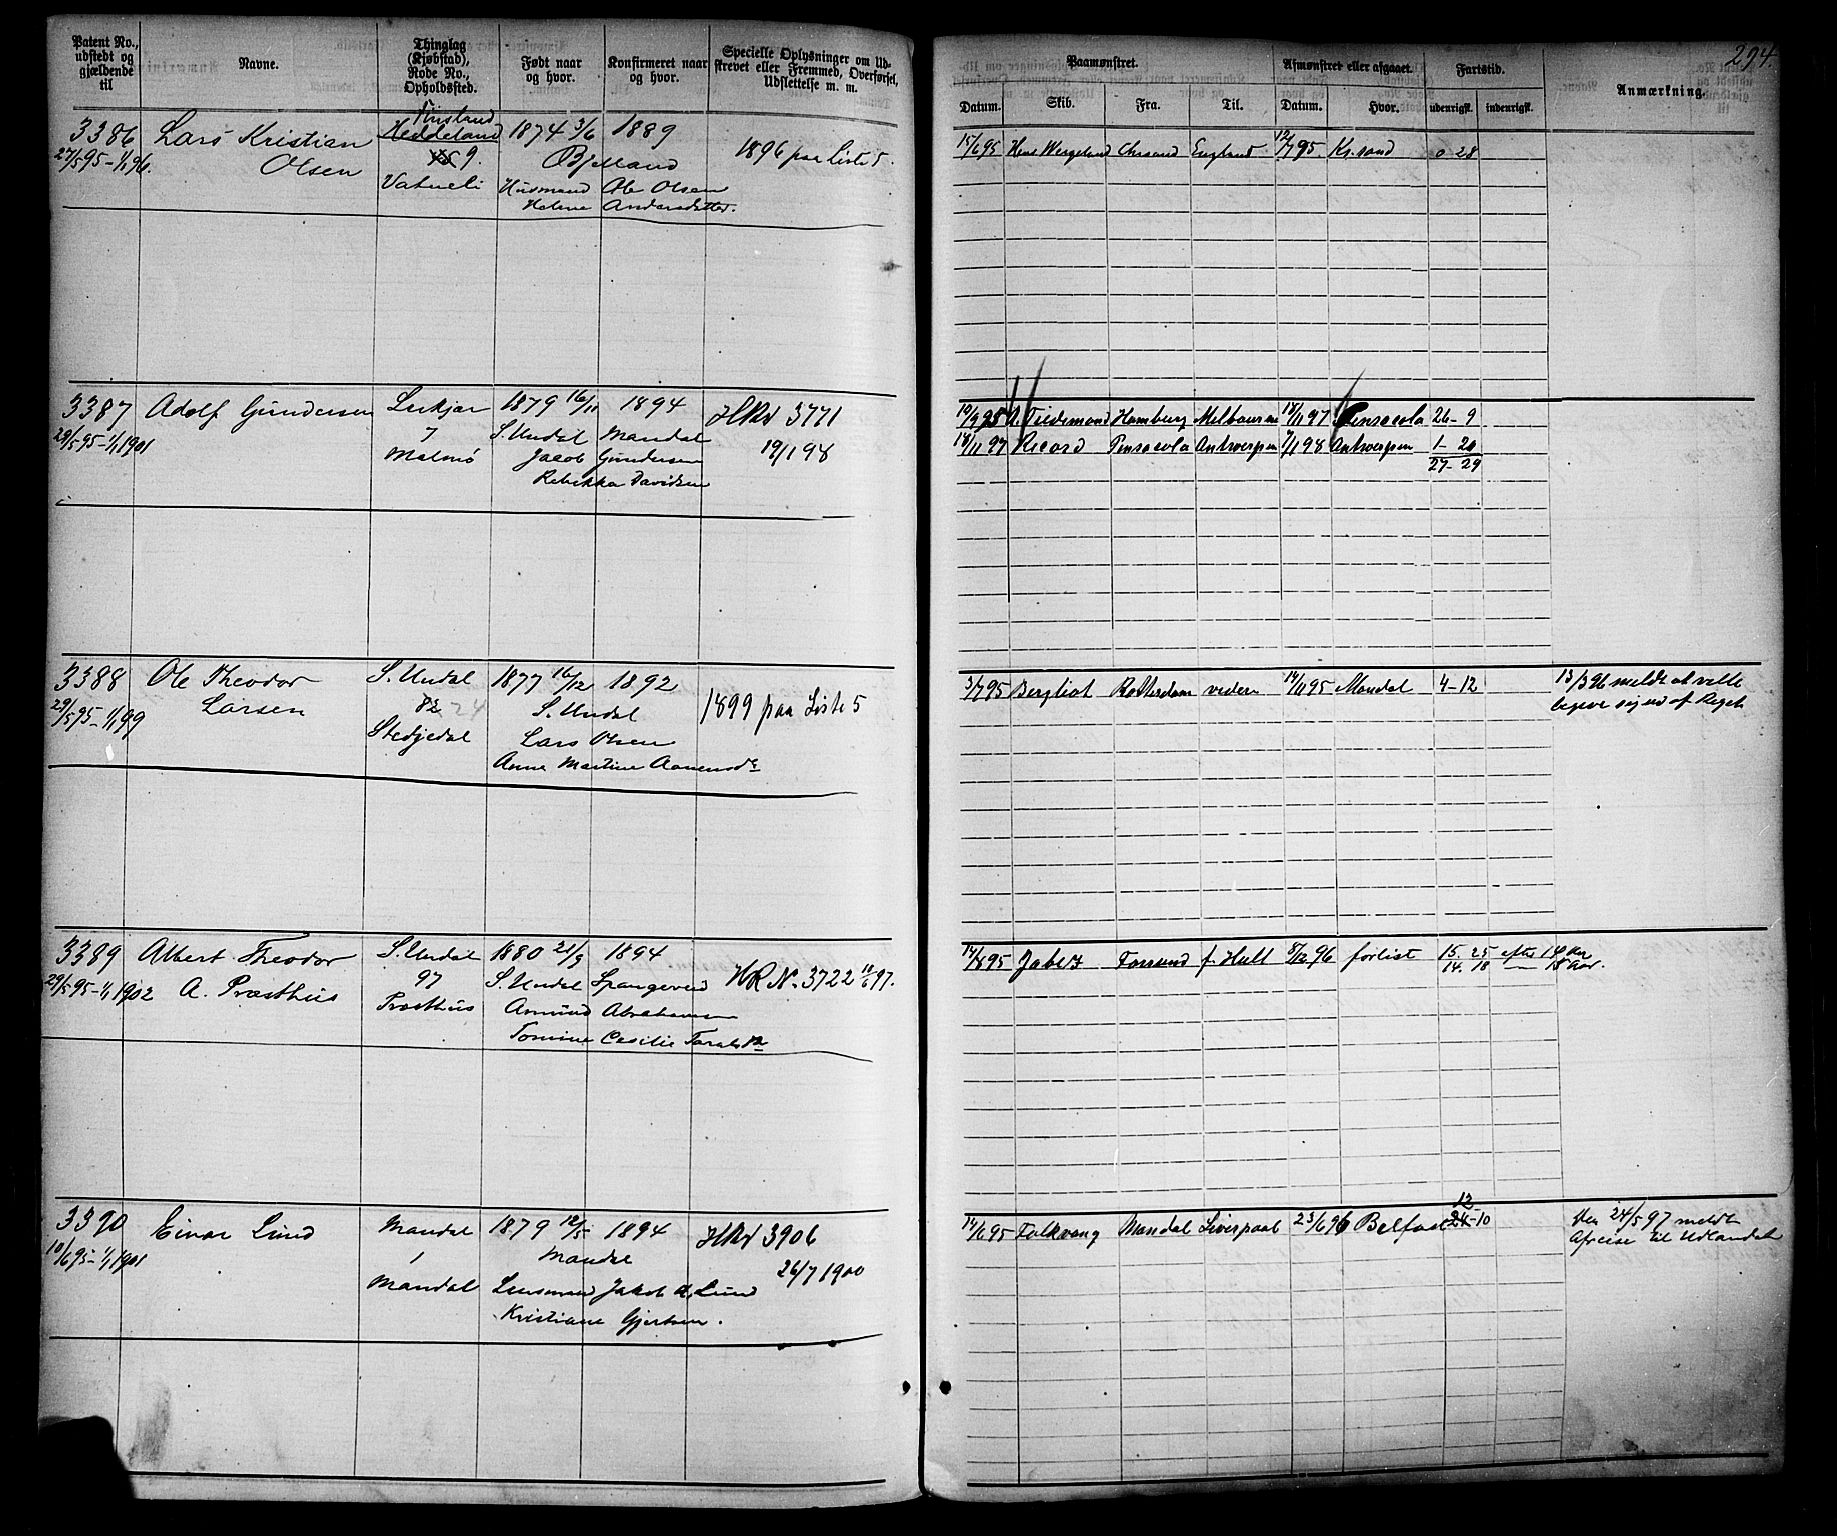 294.
Patent No., udstedt og gjældende til
Navne.
Thinglag (Kjøbstad), Rode No., Opholdssted.
Født naar og hvor.
Konfirmeret naar og hvor.
Specielle Oplysninger om Udskrevet eller Fremmed, Overførsel, Udslettelse m. m.
Paamønstret.
Datum.
Skib.
Fra.
Til.
Afmønstret eller afgaaet.
Datum.
Hvor.
Fartstid.
udenrigsk.
indenrigsk.
Anmærkning.
3386 Lars Kristian Heddeland 1874 3/6 1889
27/5 95 – 1/1 96. Olsen 9. Bjelland 1896 paa Liste 5.
Vatneli Husmand Ole Olsen
Helene Andersdatter.
15/6 95 Hen. Wergeland Chrsand England 12/7 95 Kr.sand 0 28
3387 Adolf Gundersen 7 1879 16/11 1894 HRN 3771
29/5 95 – 1/1 1901 Malmø S. Undal Mandal 19/1 98
Jacob Gundersen
Rebekka Davidsen
A. Tiedemand Hamburg Melbourne 18/11 97 Pensacola 26 – 9
18/11 97 Ricard Pensacola Antwerpen 7/1 98 Antwerpen 1 – 20
27 – 29
3388 Ole Theodor S. Undal 1877 16/12 1892
29/5 95 – 1/1 99 Larsen 24 S. Undal 1899 paa Liste 5
Stedjedal Lars Olsen
Anne Martine Aanensd
3/7 95 Bergliot Rotterdam videre 14/11 95 Mandal 4 – 12 13/3 96 meldt at ville
begive sig ud af Riget
3389 Albert Theodor S. Undal 1880 21/9 1894
29/5 95 – 1/1 1902 A. Præsthus 97 S. Undal Spangereid HR N. 3722 97.
Præsthus Anmund Abrahamsen
Tomine Cecilie Taralsd
17/8 95 Jabez Farsund f. Hull 8/12 96 forlist 15. 25 efter
14. 18 — 15 Aar.
3390 Einar Lund Mandal 1879 12/5 1894 HRN 3906
10/6 95 – 1/1 1901 1 Mandal 26/7 1900
Mandal Lensmand Jakob A. Lund
Kristiane Gjertsen.
12
14/6 95 Falkvang Mandal Liverpool 23/6 96 Belfast 10 24/5 97 meldt
Afreise til Udlandet